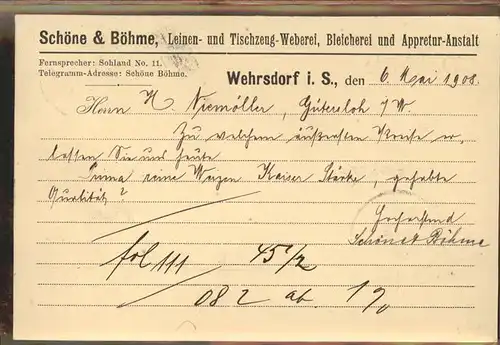 Schöne & Böhme, Leinen- und Tischzeug-Weberei, Bleicherei und Appretur-Anstalt
Fernsprecher: Sohland No. 11.
Telegramm-Adresse: Schöne Böhme.
Wehrsdorf i. S., den 6. Mai 1908.
Herrn H Niemöller, Gütersloh i/W.
Zu welchem äußersten Preise er,
lassen Sie uns heute
Prima reine Weizen Kaiser Stärke, gehabte
Qualität?
Hochachtend
Schöne & Böhme
fol 111 45 1/2
08 2 ab. 1%